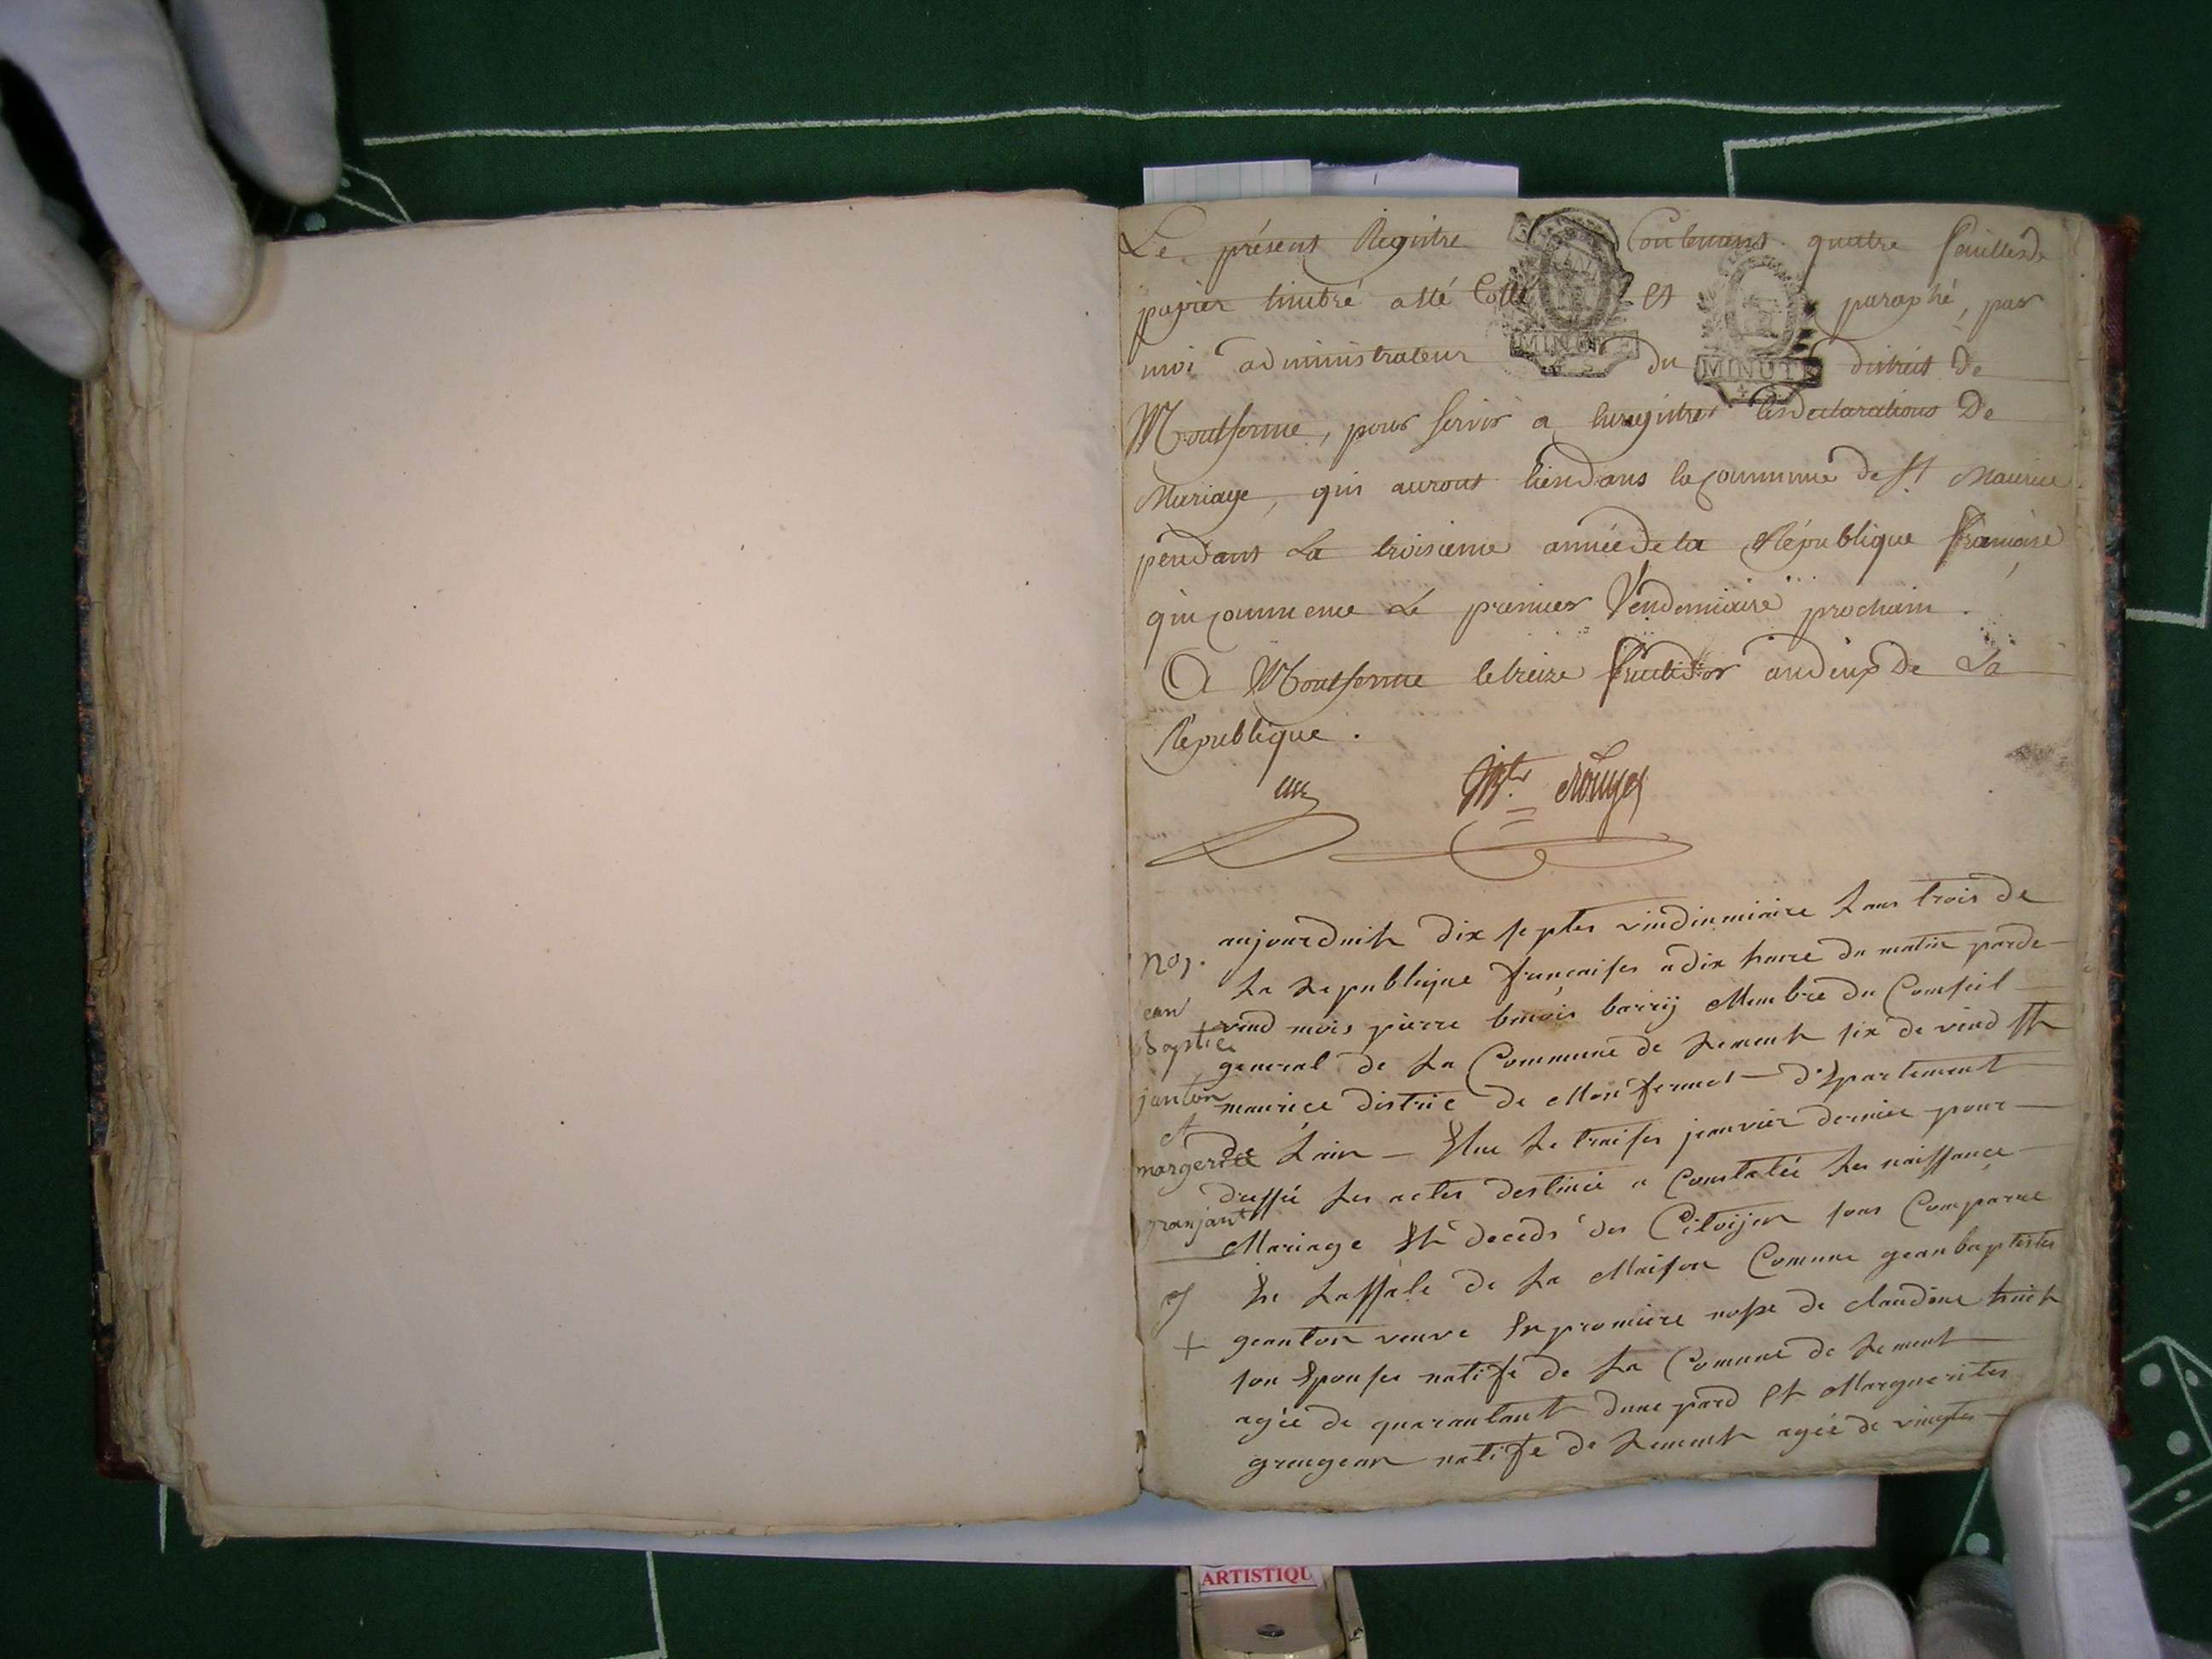 Le présent Registre Contenant quatre feuilles de
papier timbré a été Cotté et paraphé, par
moi administrateur du district De
Montferme, pour servir a Enregistrer les declarations De
Mariage, qui auront lieu dans la commune de St Maurice
pendant La troisieme année de la République francaise
qui commence Le premier Vendemiaire prochain.
A Montferme le treize fructidor an deux De La
République.
MINUTE
MINUTE
Rouyer
no 1.
ean
Baptiste
janton
et
margerite
granjant
aujourduih dix septes vindinmiaire Lans trois de
La Republique françaises a dix heure du matin parde
vend mois pierre benois barrij Membre du Conseil
general de La Commune de Rement six de vend St
maurice distric de Monfermet Departement
de Lain — Elue Le traises jeanvier dernier pour
dressé Les actes destinée a Constatée Les naissance
Mariage Et décéds des Citoijen sons Comparue
En Lassale de La Maison Comune gean baptistes
geanton veuve En premiere nosse de claudine huit
son Epouses natife de La Comune de Rement
agée de quarantant dune pard Et Marguerites
grengean natife de Rement agée de vingtes
ARTISTIQU